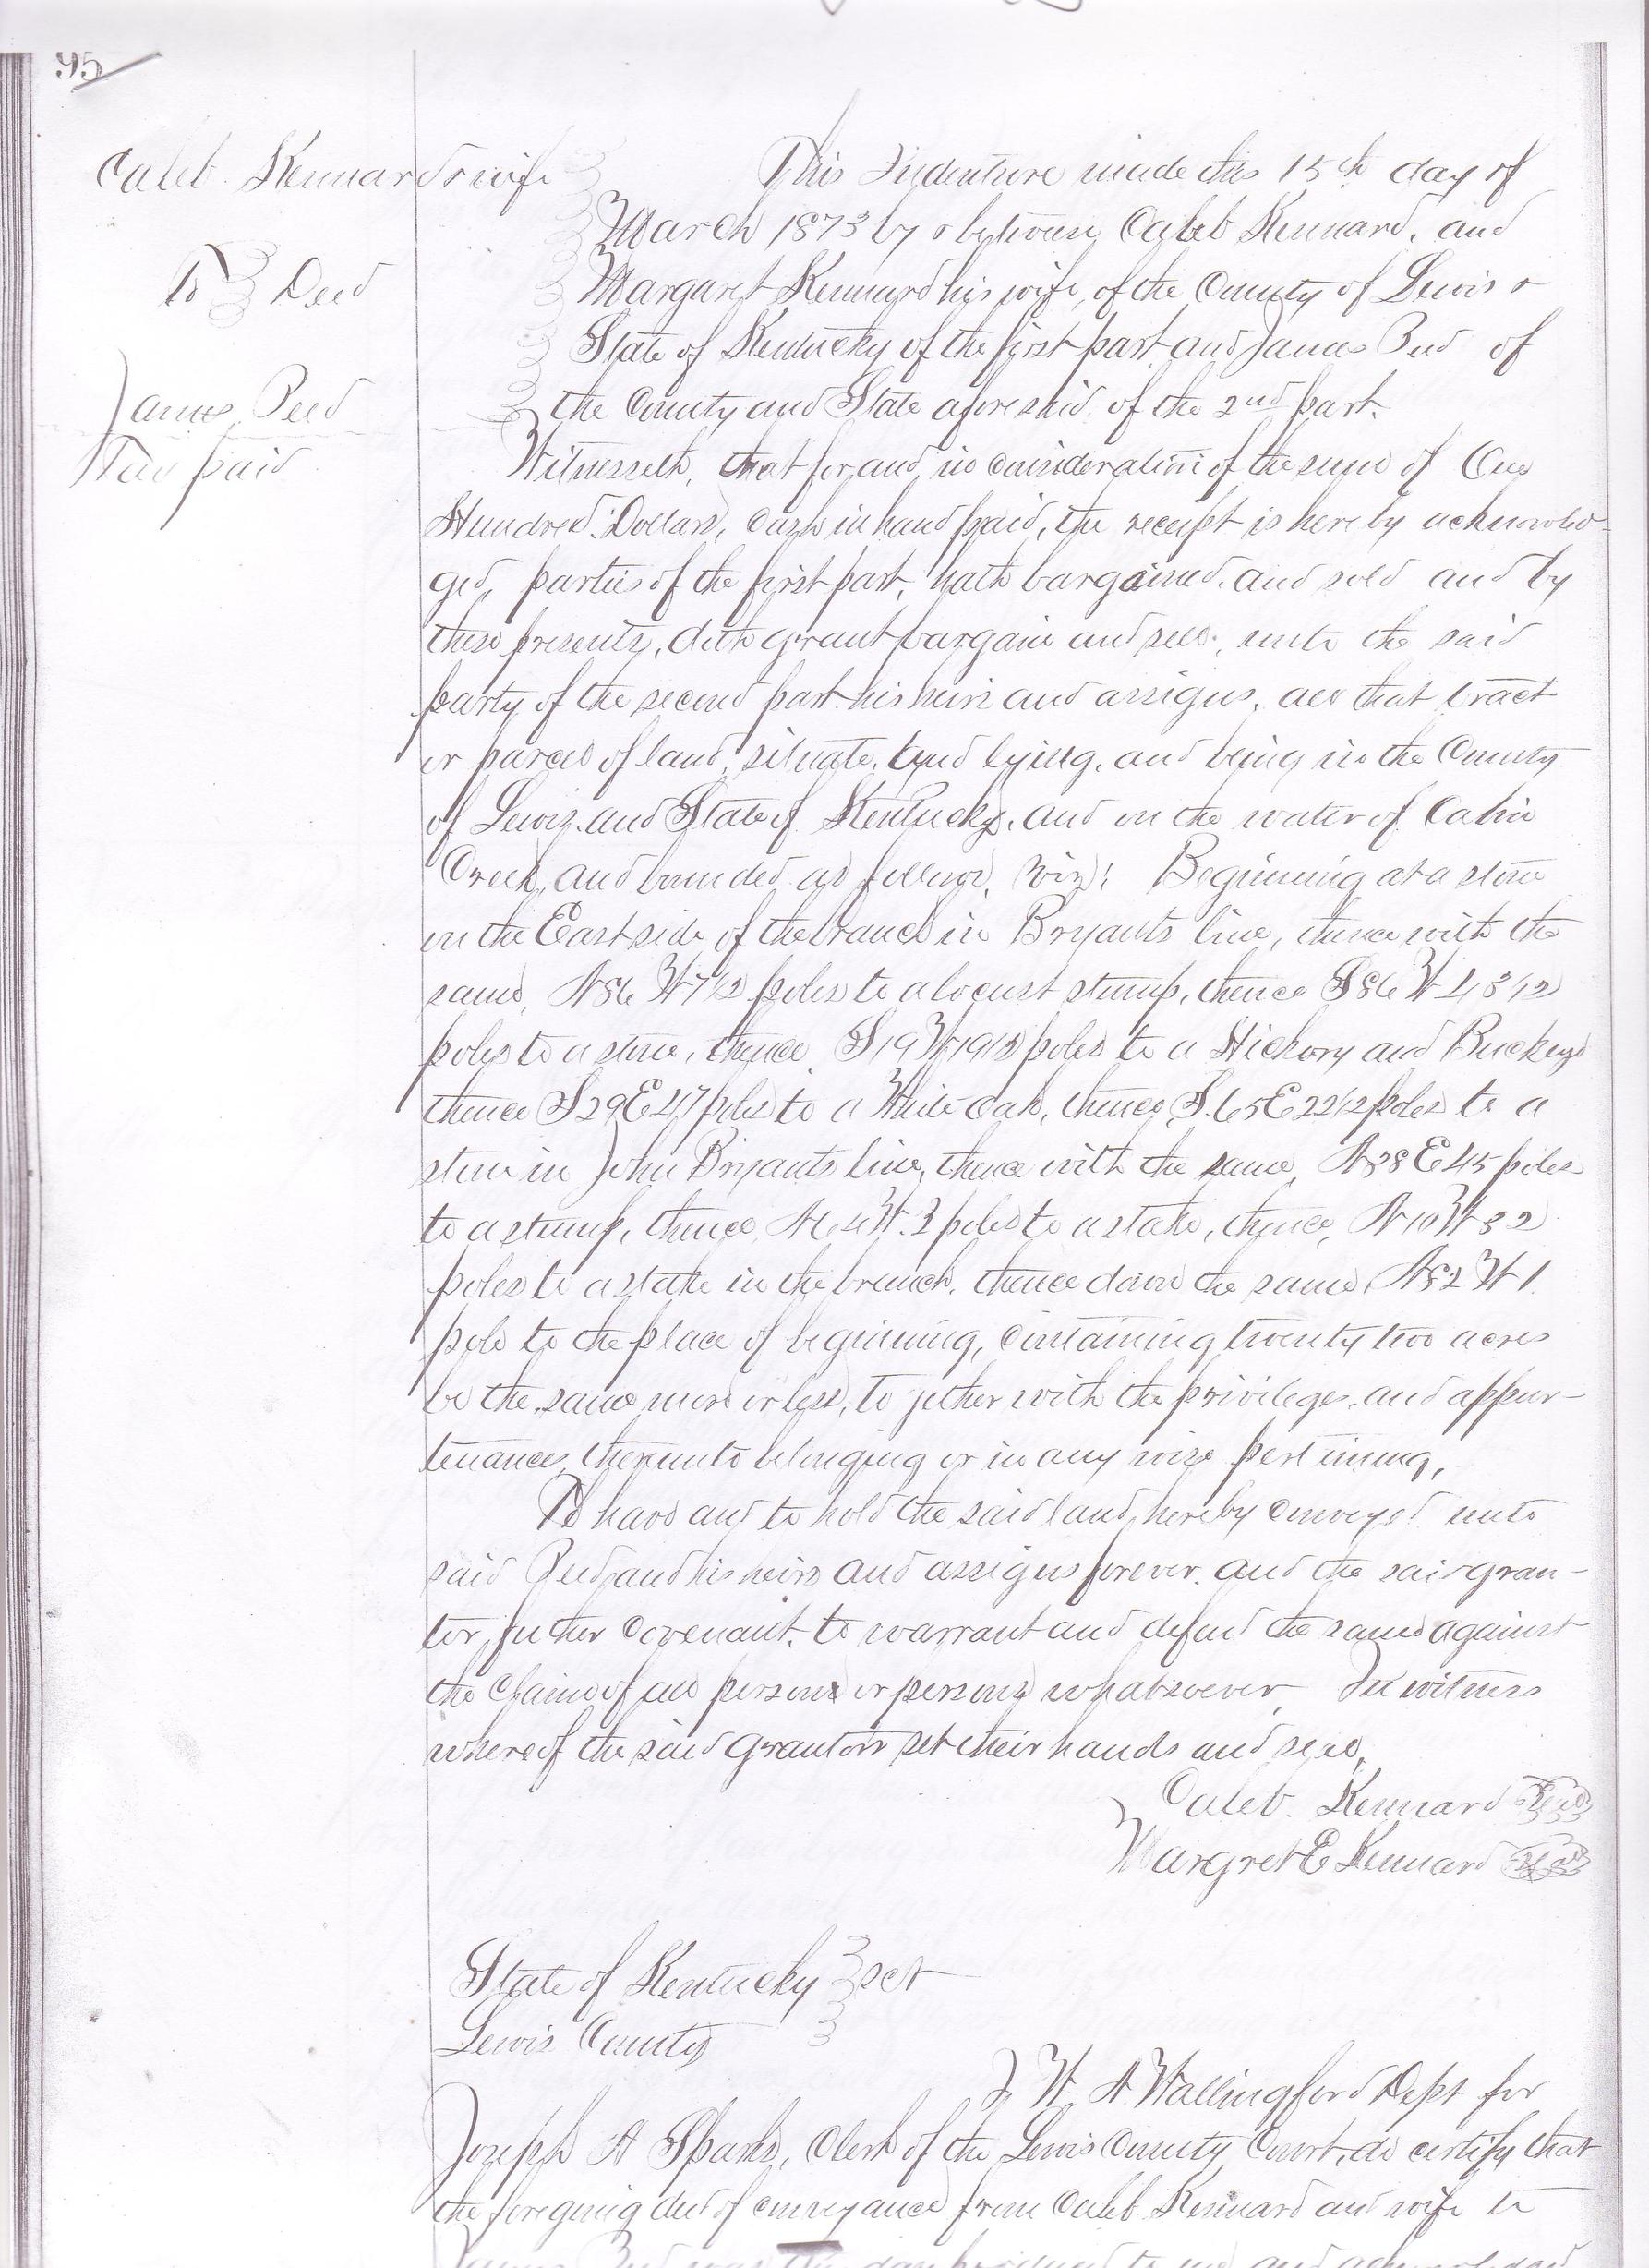 95
Caleb Kennard & wife
To Deed
James Peed
Tax paid
This Indenture made this 15th day of
March 1873 by & between Caleb Kennard, and
Margaret Kennard his wife, of the County of Lewis &
State of Kentucky of the first part and James Peed of
the County and State aforesaid of the 2nd part.
Witnesseth, that for and in consideration of the sum of One
Hundred Dollars, cash in hand paid, the receipt is hereby acknowled-
ged, parties of the first part, hath bargained, and sold and by
these presents, doth grant bargain and sell, unto the said
party of the second part his heirs and assigns, all that tract
or parcel of land, situate, lying, and being in the County
of Lewis and State of Kentucky, and on the water of Cabin
Creek, and bounded as follows, viz: Beginning at a stone
on the East side of the branch in Bryants line, thence with the
same, N86 W 7 1/2 poles to a locust stump, thence S86 W 43 1/2
poles to a stone, thence S19 W 19 1/2 poles to a Hickory and Buckeye
thence S29 E 47 poles to a White oak, thence S.65 E 22 1/2 poles to a
stone in John Bryants line, thence with the same, N38 E 45 poles
to a stump, thence N64 W. 3 poles to a stake, thence, N10 W 32
poles to a stake in the branch, thence down the same, N82 W 1
pole to the place of beginning, containing twenty two acres
be the same more or less, to gether with the privileges, and appur-
tenances, thereunto belonging or in any wise pertaining,
To have and to hold the said land, hereby conveyed unto
said Peed, and his heirs and assigns forever. and the said gran-
tor, futher covenant, to warrant and defend the same against
the claim of all persons or persons whatsoever In witness
where of the said grantors set their hands and seal,
Caleb. Kennard Seal
Margret E Kennard Seal
State of Kentucky sct
Lewis County
I W. A Wallingford Dept for
Joseph A Sparks, Clerk of the Lewis County Court, do certify that
the foregoing deed of conveyance from Caleb Kennard and wife to
James Peed was this day produced to me and acknowledged